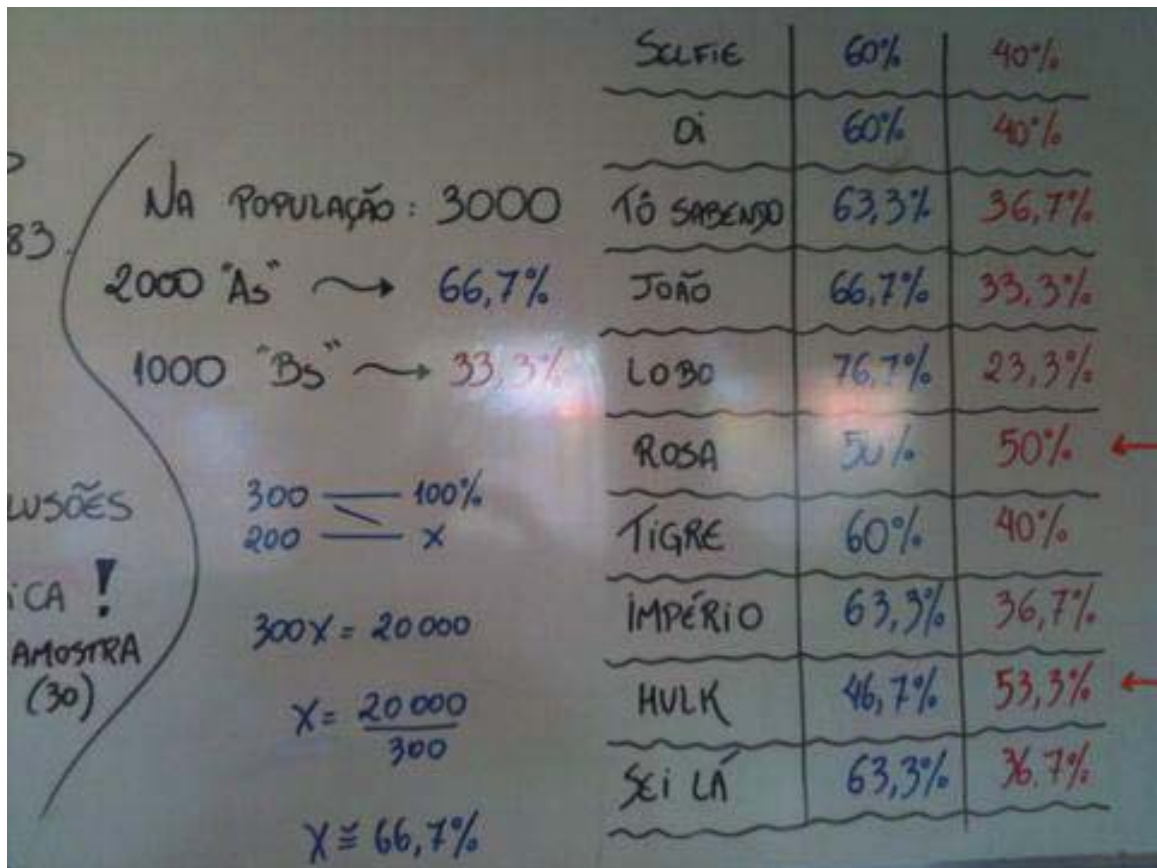 83.
LUSÕES
ICA !
AMOSTRA
(30)
NA POPULAÇÃO: 3000
2000 "As" → 66,7%
1000 "Bs" → 33,3%
300 — 100%
200 — X
300X = 20000
X = 20000
300
X ≅ 66,7%
SELFIE 60% 40%
Oi 60% 40%
TÔ SABENDO 63,3% 36,7%
JOÃO 66,7% 33,3%
LOBO 76,7% 23,3%
ROSA 50% 50% ←
TIGRE 60% 40%
IMPÉRIO 63,3% 36,7%
HULK 46,7% 53,3% ←
SEI LÁ 63,3% 36,7%